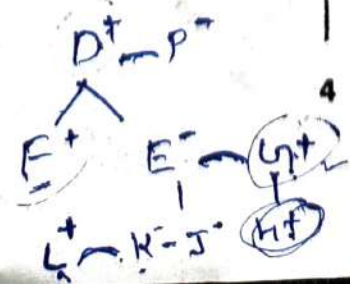 D+ — P-
4
F+ E- — G+
L+ — K- - J- H+